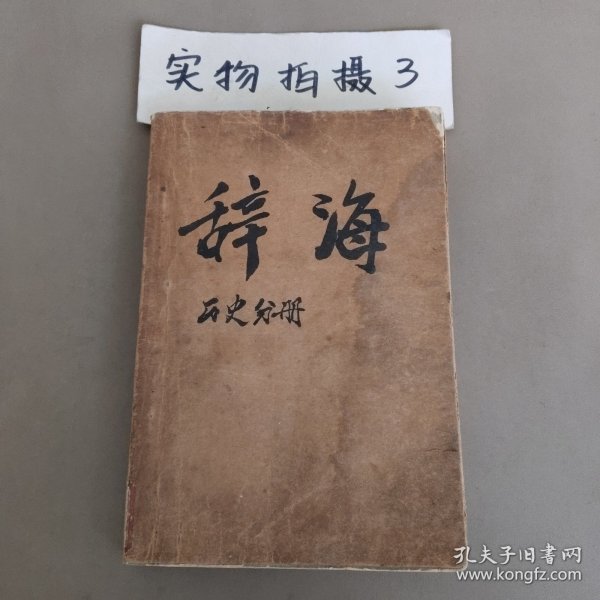 实物拍摄3
辞海
历史分册
孔夫子旧书网
www.kongfz.com